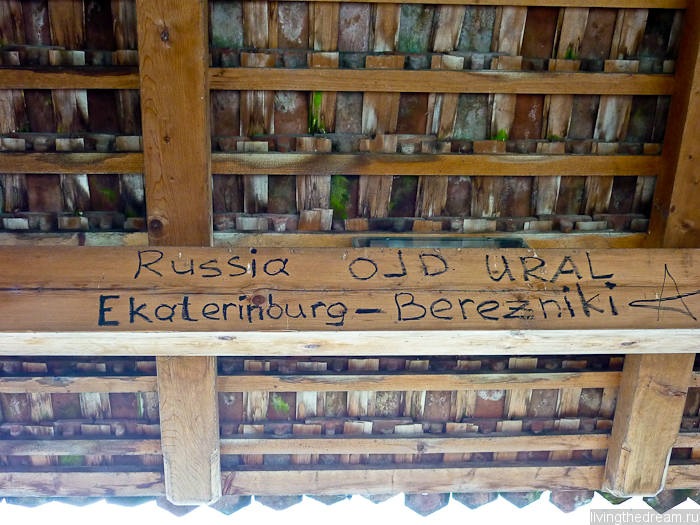 Russia OJD URAL
Ekaterinburg - Berezniki
livingthedream.ru